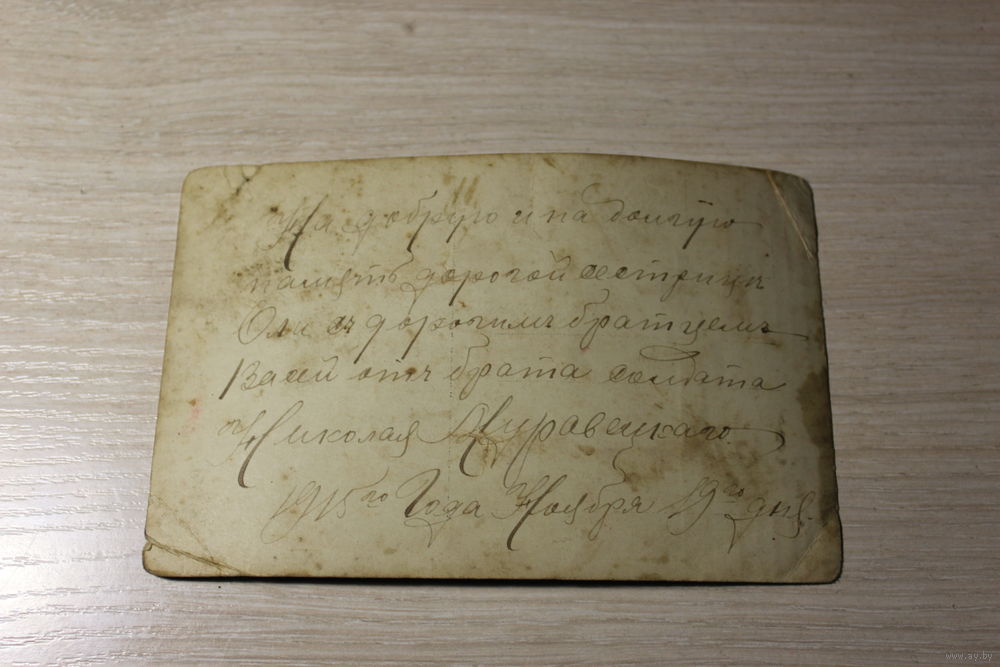 На добрую и на долгую
память дорогой сестрицѣ
Оли съ дорогимъ братцемъ
Васей отъ брата солдата
Николая Муравецкаго.
1915го Года Ноября 19го дня.
www.ay.by